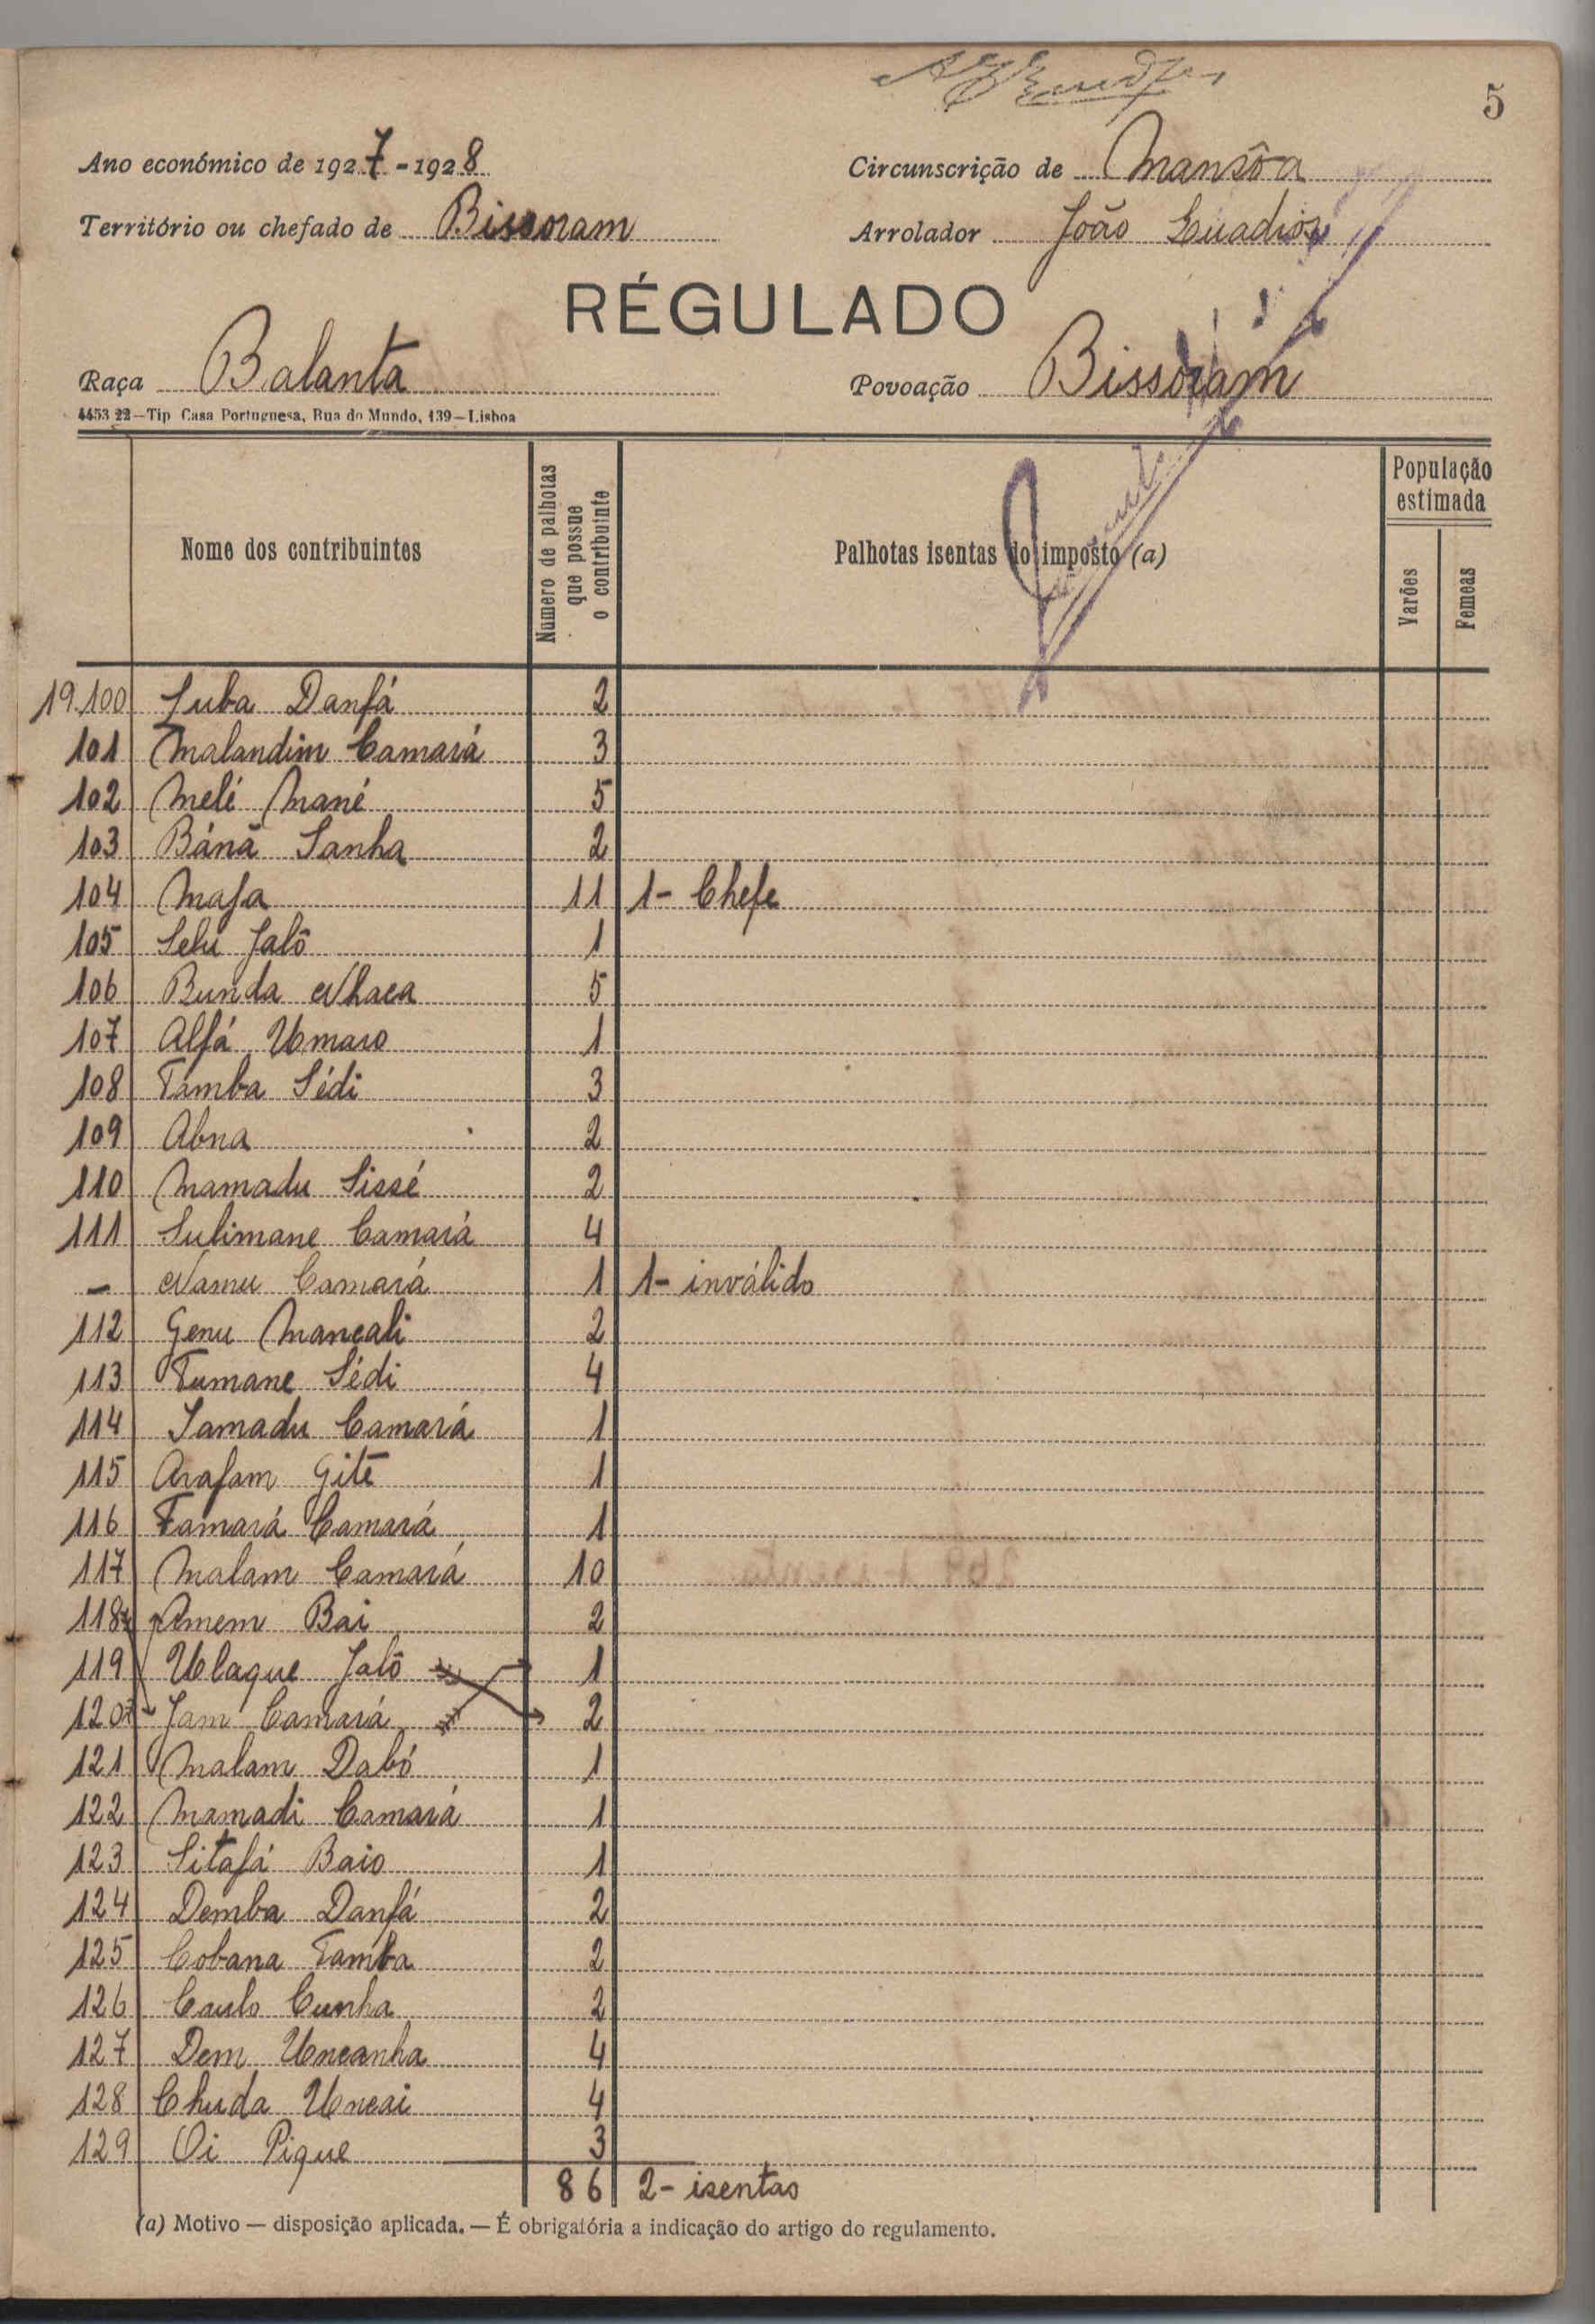 5
Ano económico de 1927-1928
Circunscrição de Mansôa
Território ou chefado de Bissoram
Arrolador João
RÉGULADO
Raça Balanta
Povoação Bissorám
4453 22—Tip Casa Portuguesa, Rua do Mundo, 139—Lisboa
Nome dos contribuintes
Número de palhotas que possue o contribuinte
Palhotas isentas do imposto (a)
População estimada
Varões
Femeas
19.100 Suba Danfá 2
101 Malandim Camará 3
102 Melé Mané 5
103 Bánã Sanha 2
104 Mafa 11 1- Chefe
105 Selu Jalô 1
106 Bunda Nhaca 5
107 Alfá Umaro 1
108 Tamba Sédi 3
109 Abna 2
110 Mamadu Sissé 2
111 Sulimane Camará 4
- Namu Camará 1 1- inválido
112 Genu Mancali 2
113 Tumane Sédi 4
114 Samadu Camará 1
115 Arafam Gité 1
116 Famará Camará 1
117 Malam Camará 10
118 Amem Bai 2
119 Ulaque Jalô 1
120 Jam Camará 2
121 Malam Dabó 1
122 Mamadi Camará 1
123 Sitafá Baio 1
124 Demba Danfá 2
125 Cobana Tamba 2
126 Caulo Cunha 2
127 Dem Uncanha 4
128 Chuda Uncai 4
129 Oi Pique 3
86 2- isentas
(a) Motivo — disposição aplicada. — É obrigatória a indicação do artigo do regulamento.